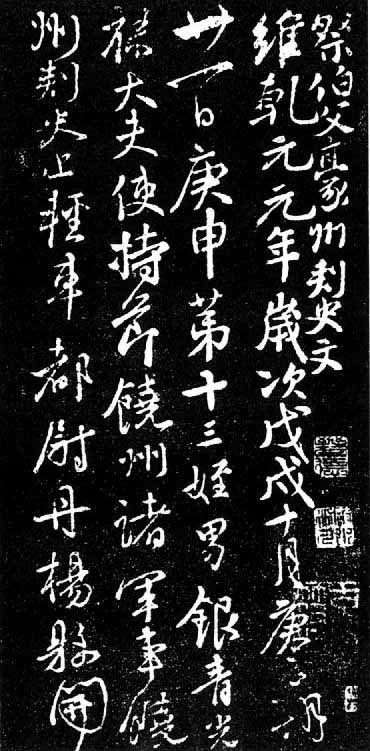 祭伯父豪州刺史文
維乾元元年歲次戊戌十月庚子朔
廿一日庚申第十三姪男銀青光
祿大夫使持節饒州諸軍事饒
州刺史上輕車都尉丹楊縣開